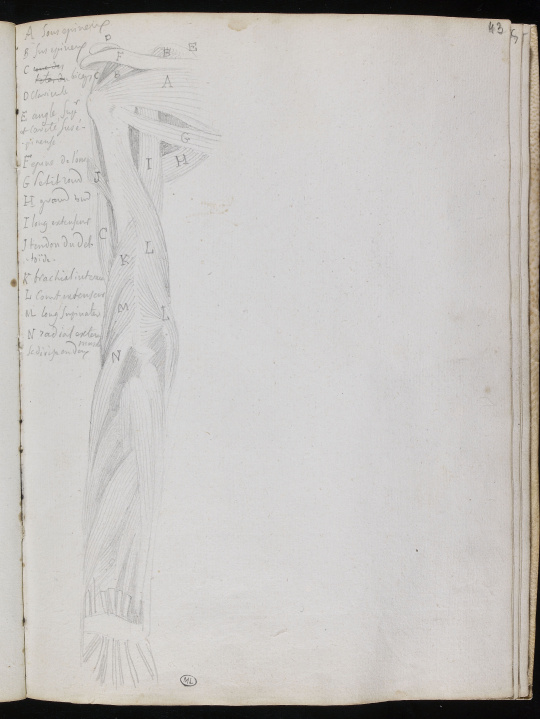 43
A Sous epineux
B Sus epineux
C biceps
D clavicule
E angle Supr
et cavité Suse-
-pineuse
F epine de l'omo
G petit rond
H grand rond
I long extenseur
J tendon du del-
-toïde.
K brachial interne
L court extenseur
M long Supinateur
N radial externe
D
B
E
F
C
B
A
G
H
I
J
C
K
L
M
L
N
ML